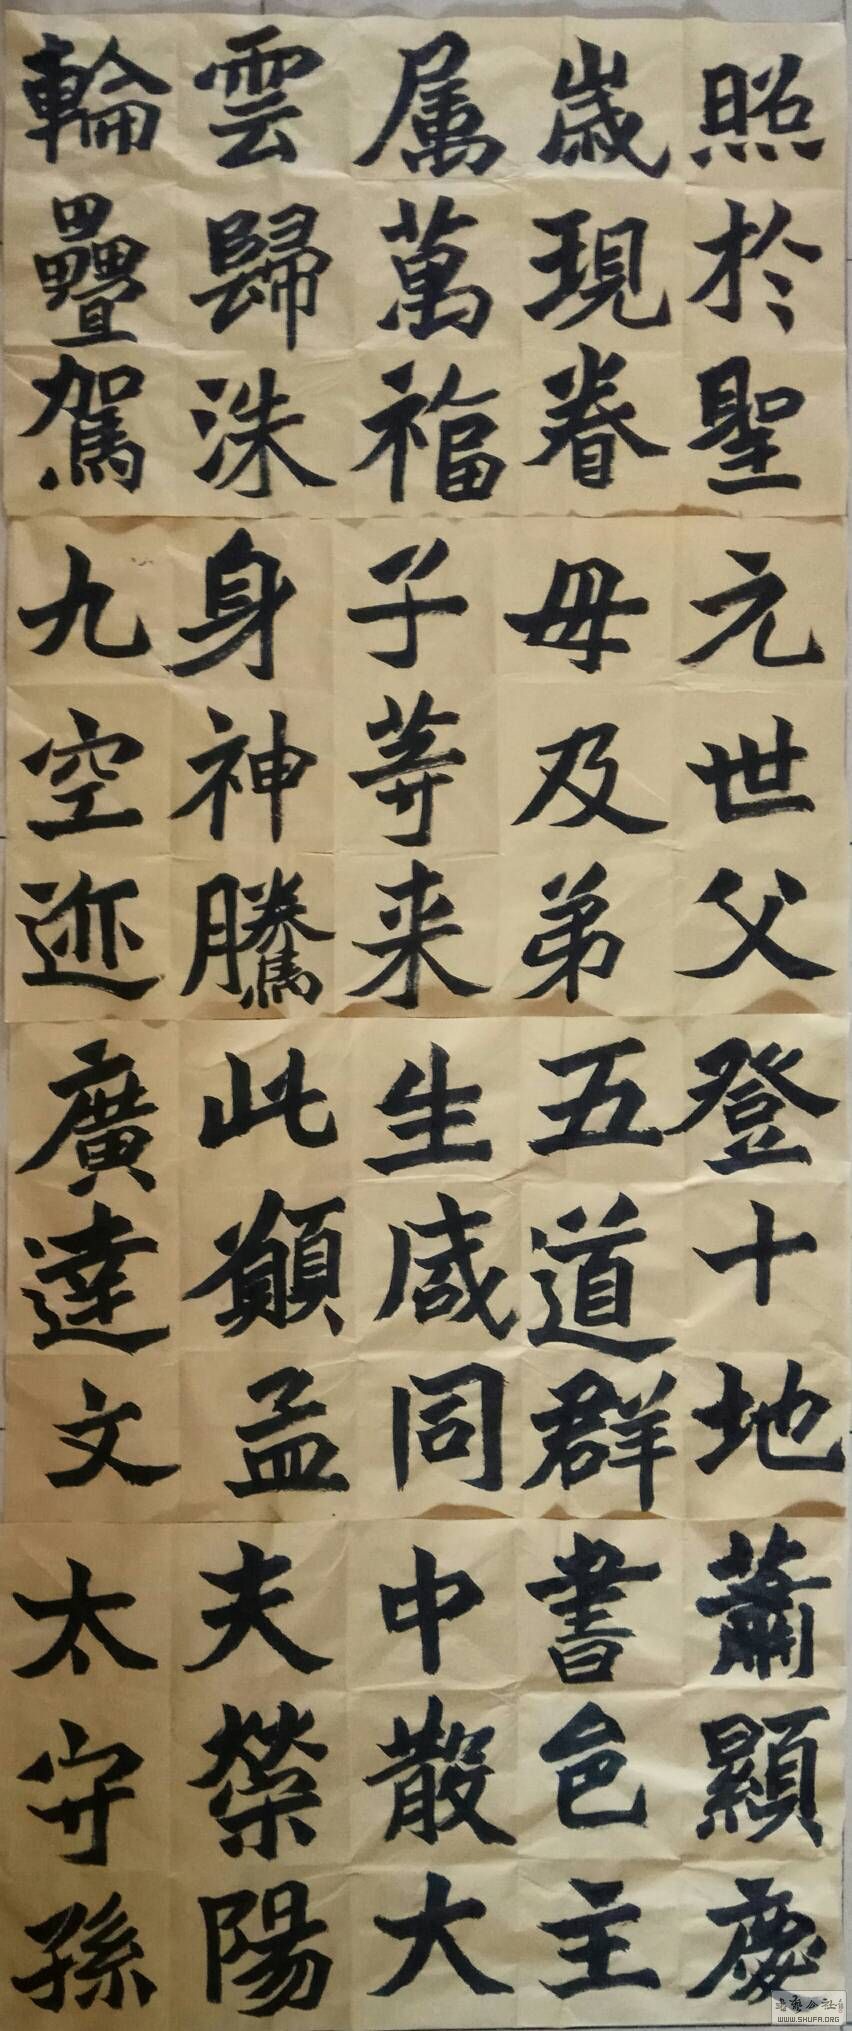 照於聖
歲現眷
属萬福
雲歸洙
輪疊駕
元世父
母及弟
子等来
身神騰
九空迹
登十地
五道群
生咸同
此願孟
廣達文
蕭顯慶
書邑主
中散大
夫榮陽
太守孫
书艺公社
WWW.SHUFA.ORG